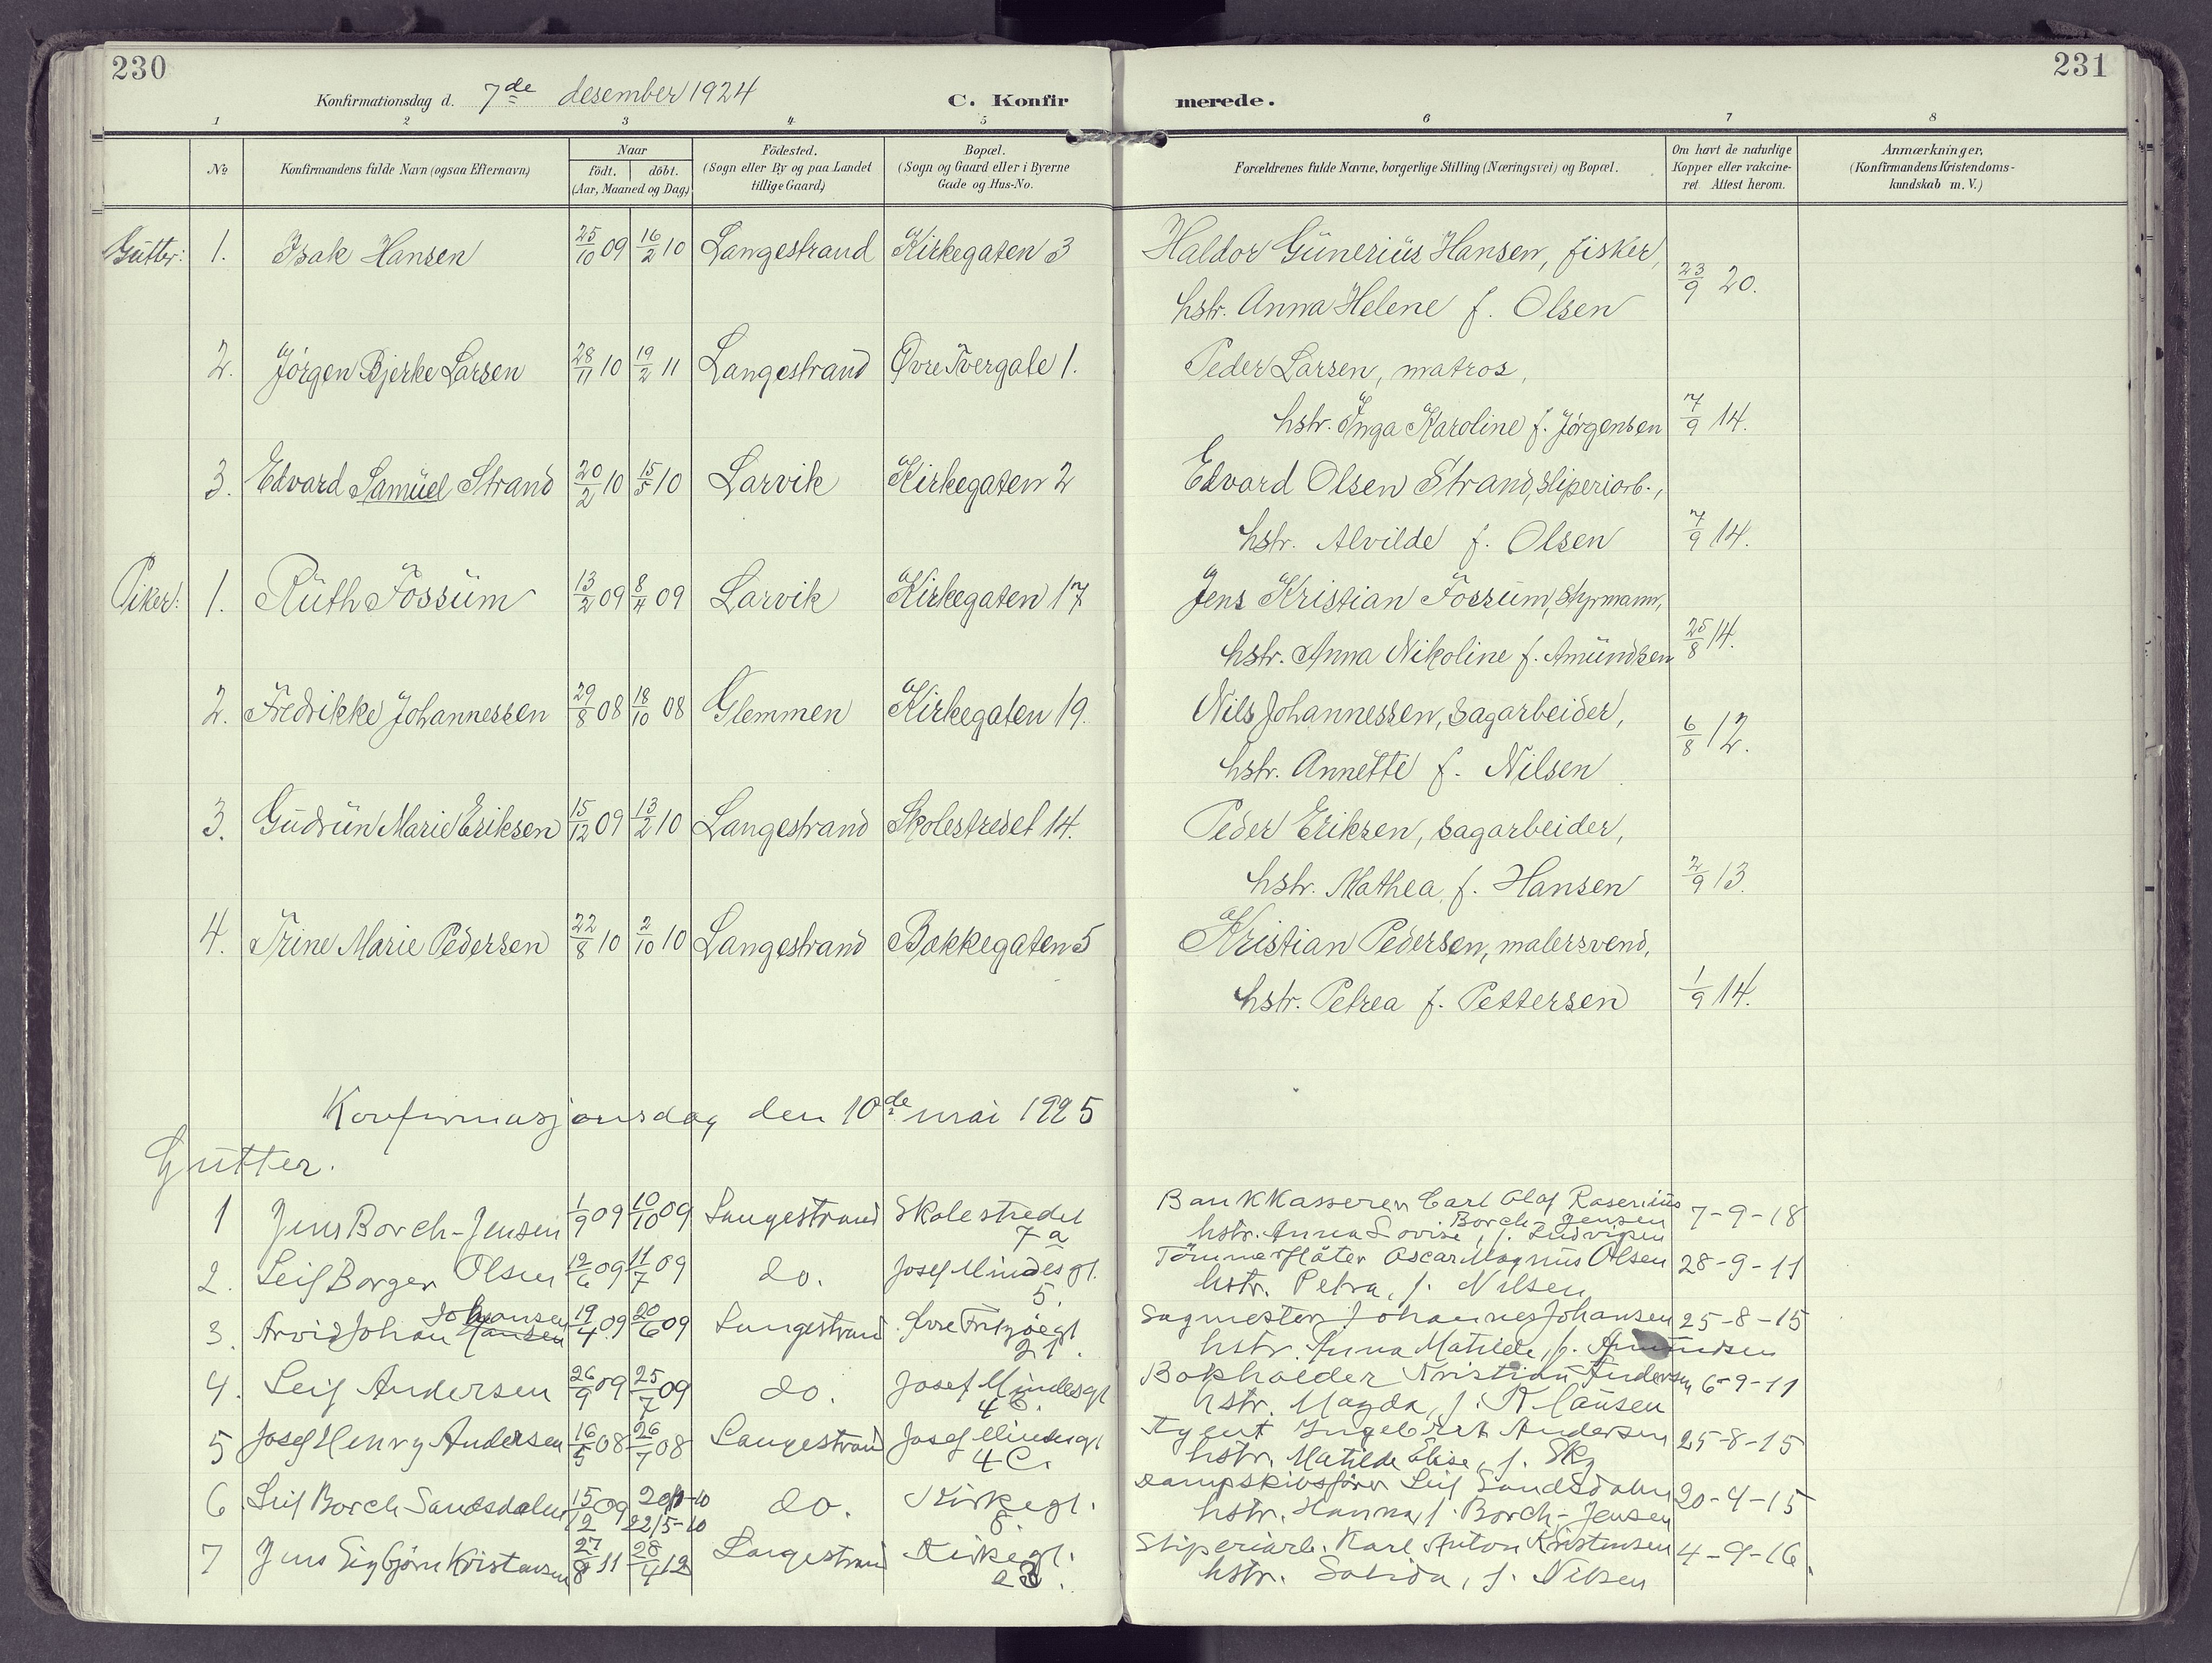 230
231
Konfirmationsdag d. 7de desember 1924
C. Konfirmerede.
1 2 3 4 5 6 7 8
No
Konfirmandens fulde Navn (ogsaa Efternavn)
Naar
födt. döbt.
(Aar, Maaned og Dag)
Födested.
(Sogn eller By og paa Landet
tillige Gaard)
Bopæl.
(Sogn og Gaard eller i Byerne
Gade og Hus-No.
Forældrenes fulde Navne, borgerlige Stilling (Næringsvei) og Bopæl.
Om havt de naturlige
Kopper eller vakcine-
ret Attest herom.
Anmærkninger,
(Konfirmandens Kristendoms-
kundskab m. V.)
Gutter: 1. Isak Hansen 25/10 09 16/2 10 Langestrand Kirkegaten 3 Haldor Gunerius Hansen, fisker,
hstr. Anna Helene f. Olsen 23/9 20.
2. Jörgen Bjerke Larsen 28/11 10 19/2 11 Langestrand Øvre Tvergate 1. Peder Larsen, matros,
hstr. Inga Karoline f. Jörgensen 7/9 14.
3. Edvard Samuel Strand 20/2 10 15/5 10 Larvik Kirkegaten 2 Edvard Olsen Strand, Sliperiarb.,
hstr. Alvilde f. Olsen 7/9 14.
Piker: 1. Ruth Fossum 13/2 09 8/4 09 Larvik Kirkegaten 17 Jens Kristian Fossum, Styrmann,
hstr. Anna Nikoline f. Amundsen 25/8 14.
2. Fredrikke Johannessen 29/8 08 18/10 08 Glemmen Kirkegaten 19. Nils Johannessen, sagarbeider,
hstr. Annette f. Nilsen 6/8 12.
3. Gudrun Marie Eriksen 15/12 09 13/2 10 Langestrand Skolestredet 14. Peder Eriksen, sagarbeider,
hstr. Mathea f. Hansen 2/9 13.
4. Trine Marie Pedersen 22/8 10 2/10 10 Langestrand Bakkegaten 5 Kristian Pedersen, malersvend,
hstr. Petrea f. Pettersen 1/9 14.
Konfirmasjonsdag den 10de mai 1925
Gutter.
1 Jens Borch-Jensen 1/9 09 10/10 09 Langestrand Skolestredet 7a Bankkasserer Carl Olaf Rasenius Borch-Jensen
hstr. Anna Lovise, f. Ludvigsen 7-9-18
2. Leif Borger Olsen 12/6 09 11/7 09 do. Josef Mindes gt. 5. Tömmerflöter Oscar Magnus Olsen
hstr. Petra, f. Nilsen 28-9-11
3. Arvid Johan Hansen Johansen 19/4 09 20/6 09 Langestrand Øvre Fritzöegt 21. Sagmester Johannes Johansen
hstr. Anna Matilde, f. Amundsen 25-8-15
4. Leif Andersen 26/9 09 25/7 09 do. Josef Mindesgt 4 C. Bokholder Kristian Andersen
hstr. Magda, f. Klausen 6-9-11
5 Josef Henry Andersen 16/5 08 26/7 08 Langestrand Josef Mindesgt 4 C. Agent Ingebret Andersen
hstr. Matilde Elise, f. Sky 25-8-15
6 Leif Borch Sandsdalen 15/12 09 22/5-10 do. Kirkegt. 8. Dampskibsförer Leif Sandsdalen
hstr. Hanna f. Borch-Jensen 20-4-15
7 Jens Sigbjörn Kristensen 27/8 11 28/4 12 Langestrand Kirkegt. Sliperiarb. Karl Anton Kristensen
hstr. f. Nilsen 4-9-16.